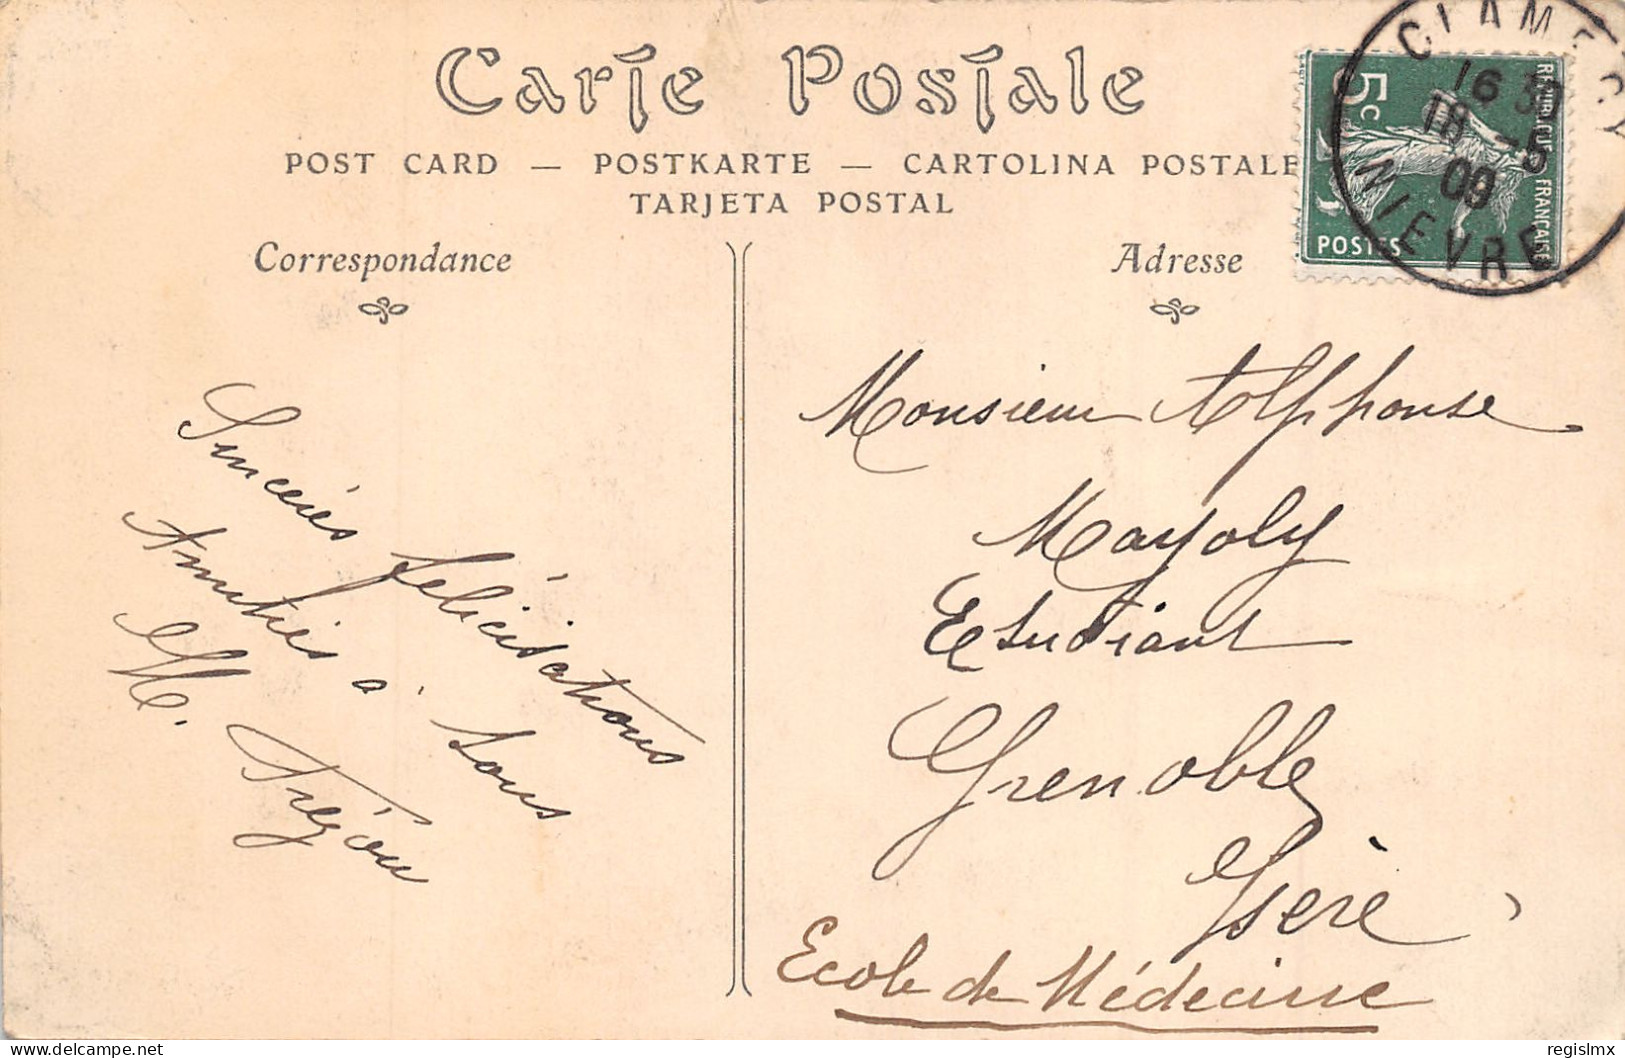 Carte Postale
POST CARD — POSTKARTE — CARTOLINA POSTALE
TARJETA POSTAL
Correspondance
Adresse
5c
REPUBLIQUE FRANÇAISE
POSTES
CLAMECY
16 30
18 - 5
09
NIEVRE
Sincères félicitations
Amitiés à tous
M.
Monsieur Alphonse
Mayoly
Etudiant
Grenoble
Isère
Ecole de Médecine
regislmx
delcampe.net